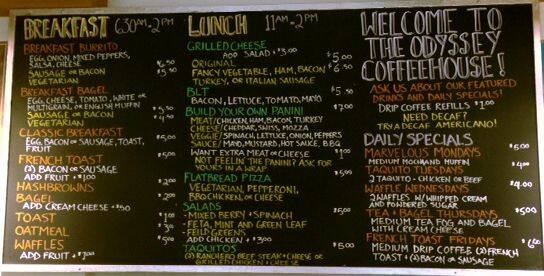 BREAKFAST 630AM-2PM
BREAKFAST BURRITO
EGG, ONION, MIXED PEPPERS,
SALSA, CHEESE
SAUSAGE OR BACON $6.50
VEGETARIAN $5.50
BREAKFAST BAGEL
EGG, CHEESE, TOMATO, WHITE OR
MULTIGRAIN, OR ENGLISH MUFFIN
SAUSAGE OR BACON $5.50
VEGETARIAN $4.50
CLASSIC BREAKFAST $5.00
EGG, BACON OR SAUSAGE, TOAST,
FRUIT
FRENCH TOAST $5.00
(2) BACON OR SAUSAGE
ADD FRUIT + $1.00
HASHBROWNS
BAGEL
ADD CREAM CHEESE + $.50
TOAST
OATMEAL
WAFFLES $5.00
ADD FRUIT + $1.00
LUNCH 11AM-2PM
GRILLED CHEESE
ADD SALAD + $3.00
ORIGINAL $5.00
FANCY VEGETABLE, HAM, BACON, $6.50
TURKEY, OR ITALIAN SAUSAGE
BLT $5.50
BACON, LETTUCE, TOMATO, MAYO
BUILD YOUR OWN PANINI $7.00
MEAT/CHICKEN, HAM, BACON, TURKEY
CHEESE/CHEDDAR, SWISS, MOZZA
VEGGIE/SPINACH, LETTUCE, ONION, PEPPERS
SAUCE/MAYO, MUSTARD, HOT SAUCE, BBQ
WANT EXTRA MEAT OR CHEESE $1.00
NOT FEELIN' THE PANINI? ASK FOR
YOURS IN A WRAP
FLATBREAD PIZZA
VEGETARIAN, PEPPERONI,
BBQ CHICKEN, OR CHEESE
SALADS $5.00
-MIXED BERRY + SPINACH
-FETA, MINT AND GREEN LEAF
-FEILD GREENS
ADD CHICKEN + $3.00
TAQUITOS $5.00
(2) RANCHERO BEEF STEAK + CHEESE OR
GRILLED CHICKEN + CHEESE
WELCOME TO
THE ODYSSEY
COFFEEHOUSE!
ASK US ABOUT OUR FEATURED
DRINKS AND DAILY SPECIALS!
DRIP COFFEE REFILLS $1.00
NEED DECAF?
TRY A DECAF AMERICANO!
DAILY SPECIALS
MARVELOUS MONDAYS $5.00
MEDIUM MOCHA AND MUFFIN
TAQUITO TUESDAYS $4.00
2 TAQUITO - CHICKEN OR BEEF
WAFFLE WEDNESDAYS $4.00
2 WAFFLES W/WHIPPED CREAM
AND POWDERED SUGAR
TEA + BAGEL THURSDAYS $5.00
MEDIUM TEA FOG AND BAGEL
WITH CREAM CHEESE
FRENCH TOAST FRIDAYS $6.00
MEDIUM DRIP COFFEE (2) FRENCH
TOAST + (2) BACON OR SAUSAGE